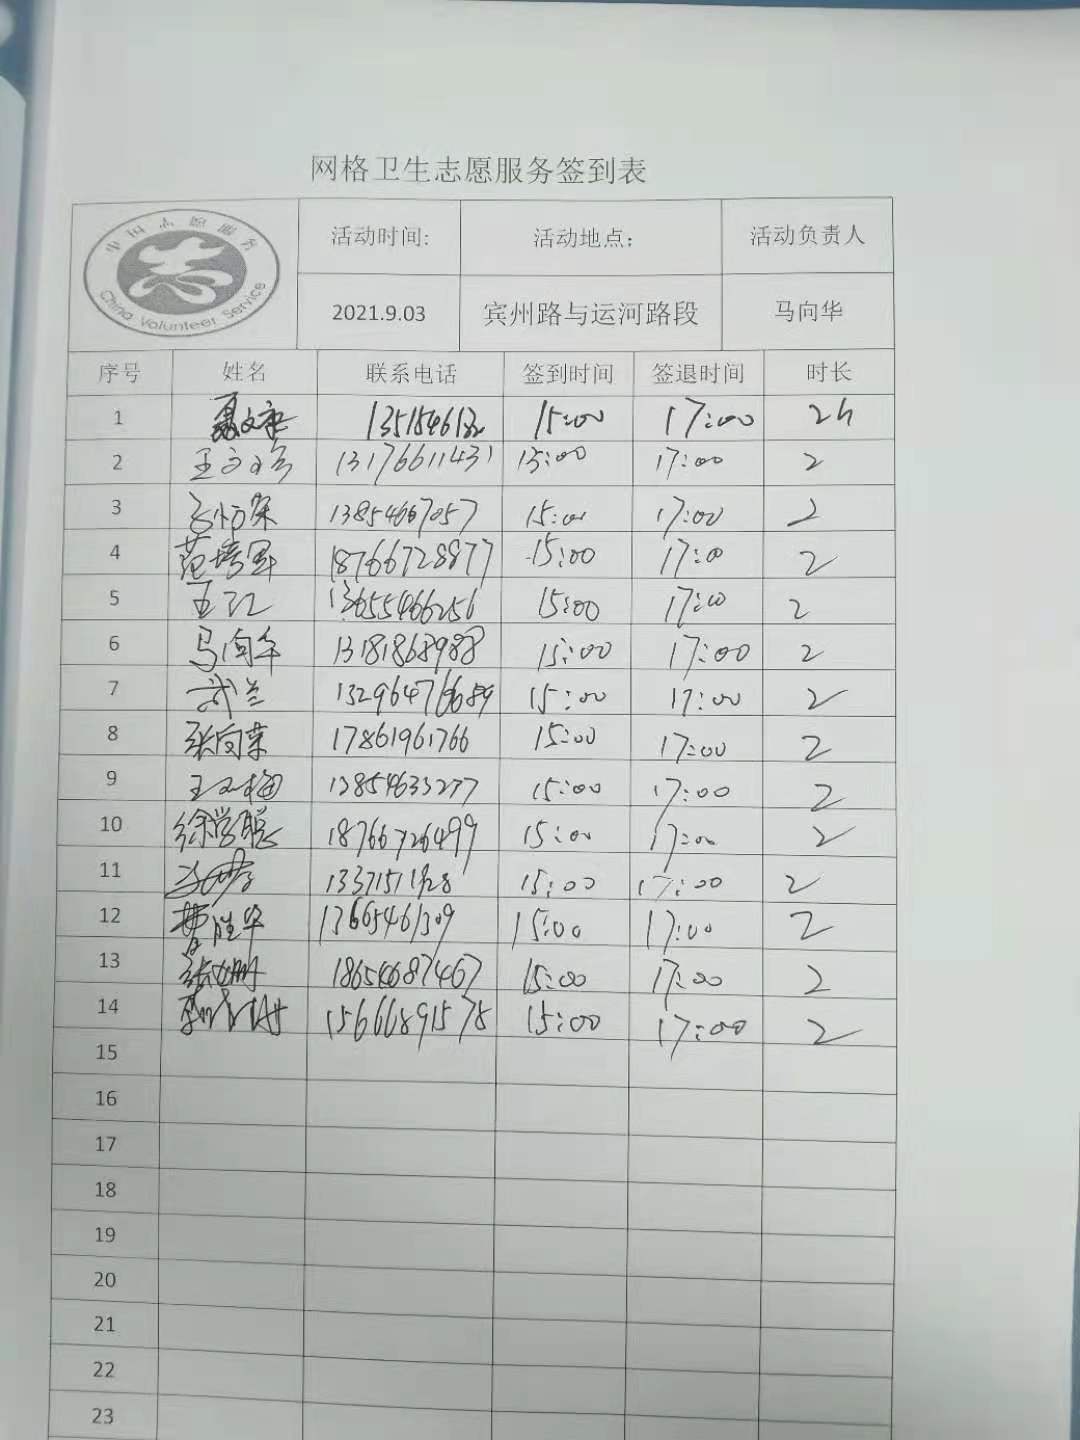 网格卫生志愿服务签到表
中国志愿服务
China Volunteer Service
活动时间: 活动地点: 活动负责人
2021.9.03 宾州路与运河路段 马向华
序号 姓名 联系电话 签到时间 签退时间 时长
1 15:00 17:00 2h
2 13176611431 15:00 17:00 2
3 13854667057 15:00 17:00 2
4 18766728877 15:00 17:00 2
5 13655466256 15:00 17:00 2
6 马向华 13181868988 15:00 17:00 2
7 武兰 15:00 17:00 2
8 张向荣 17861961766 15:00 17:00 2
9 13854633277 15:00 17:00 2
10 徐学聪 18766726499 15:00 17:00 2
11 15:00 17:00 2
12 曹胜华 13665461309 15:00 17:00 2
13 18654687467 15:00 17:00 2
14 15666891578 15:00 17:00 2
15
16
17
18
19
20
21
22
23